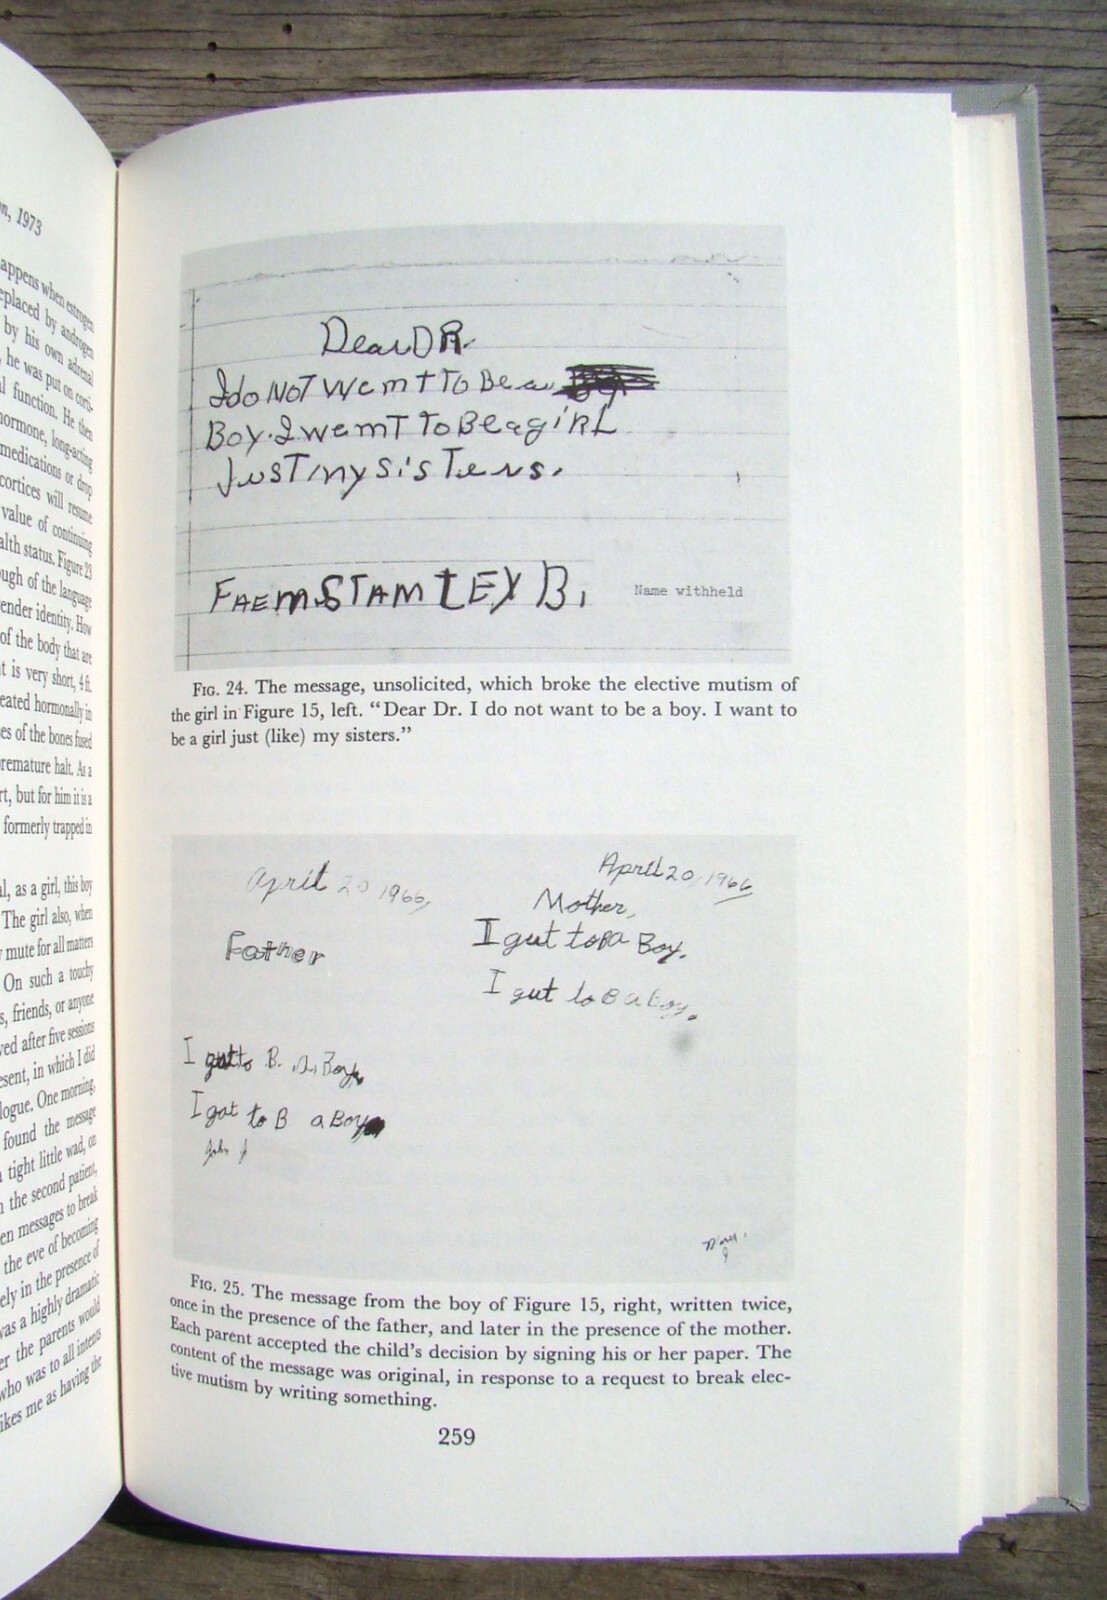 n, 1973
appens when estrogen
eplaced by androgen
by his own adrenal
, he was put on corti-
l function. He then
hormone, long-acting
medications or drop
cortices will resume
value of continuing
alth status. Figure 23
ough of the language
ender identity. How
of the body that are
t is very short, 4 ft.
eated hormonally in
es of the bones fused
remature halt. As a
rt, but for him it is a
formerly trapped in
al, as a girl, this boy
The girl also, when
y mute for all matters
On such a touchy
s, friends, or anyone
ved after five sessions
esent, in which I did
logue. One morning,
found the message
a tight little wad, on
n the second patient,
en messages to break
the eve of becoming
ely in the presence of
was a highly dramatic
er the parents would
who was to all intents
ikes me as having the
Dear DR.
I do NOT wemT To Be a
Boy. I wemT To Be a giRL
JusT my sisTers.
FAEM STAMLEY B.
Name withheld
FIG. 24. The message, unsolicited, which broke the elective mutism of
the girl in Figure 15, left. “Dear Dr. I do not want to be a boy. I want to
be a girl just (like) my sisters.”
April 20 1966,
Father
I gut to B. a Boy,
I gat to B a Boy
April 20, 1966
Mother,
I gut to B a Boy.
I gut to B a Boy.
FIG. 25. The message from the boy of Figure 15, right, written twice,
once in the presence of the father, and later in the presence of the mother.
Each parent accepted the child’s decision by signing his or her paper. The
content of the message was original, in response to a request to break elec-
tive mutism by writing something.
259